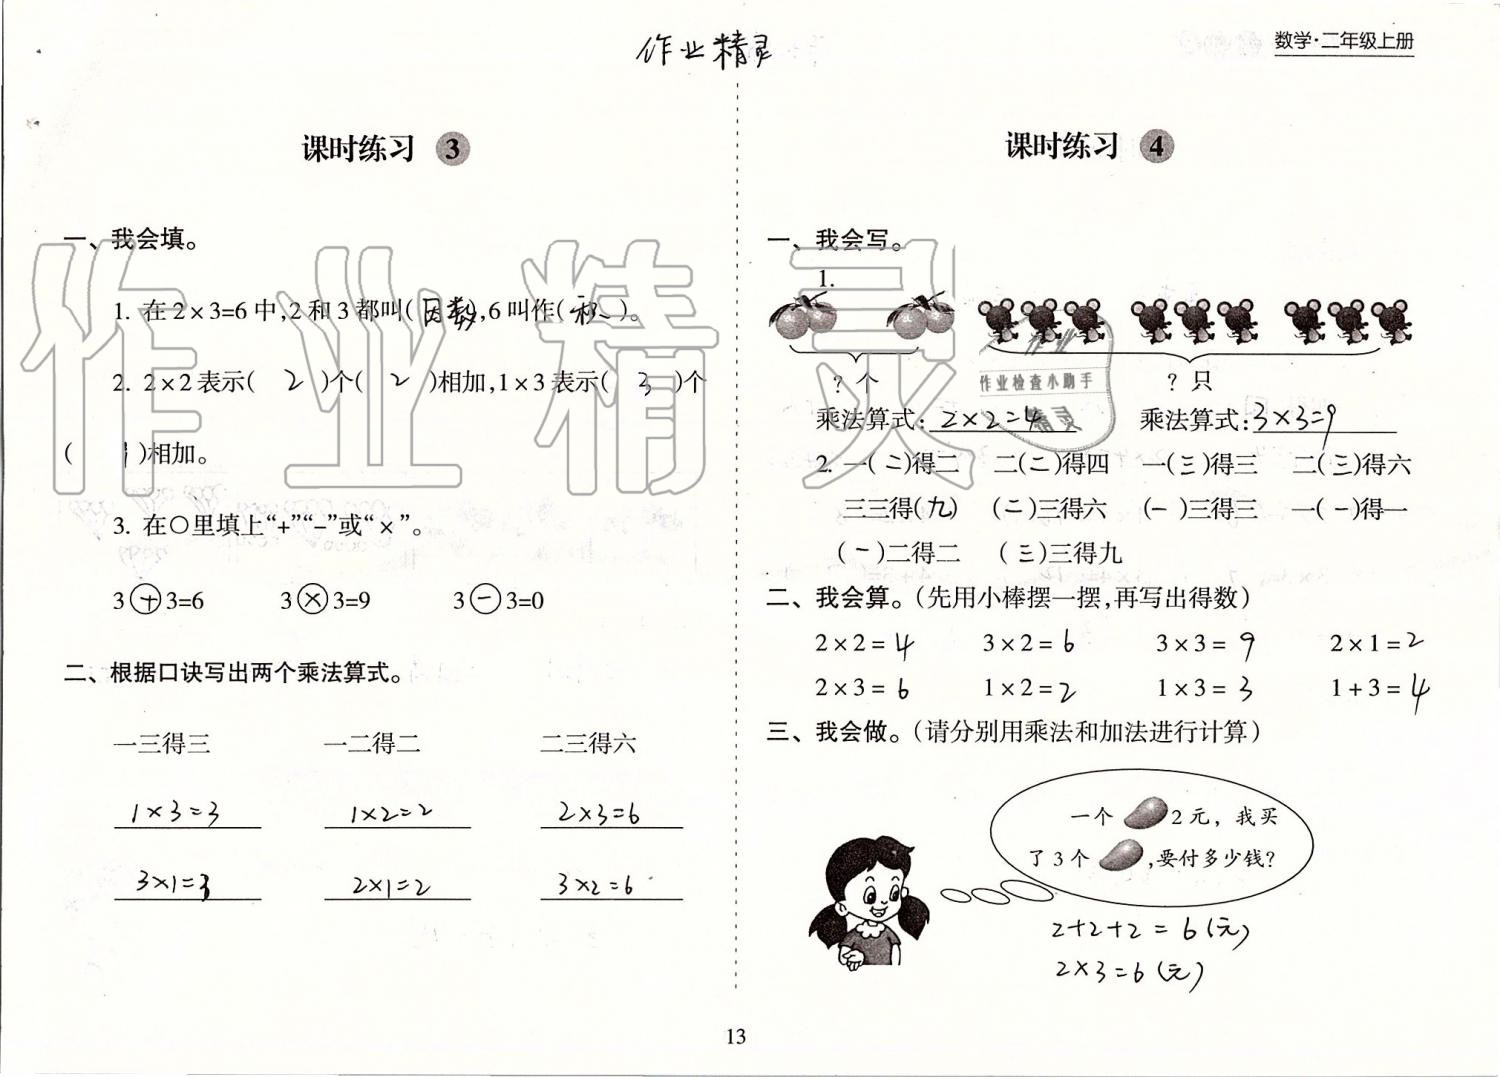 作业精灵
数学·二年级上册
课时练习 3
一、我会填。
1. 在2×3=6中,2和3都叫(因数),6叫作(积)。
2. 2×2表示( 2 )个( 2 )相加,1×3表示( 3 )个
( 1 )相加。
3. 在○里填上“+”“-”或“×”。
3+3=6 3×3=9 3-3=0
二、根据口诀写出两个乘法算式。
一三得三 一二得二 二三得六
1×3=3 1×2=2 2×3=6
3×1=3 2×1=2 3×2=6
课时练习 4
一、我会写。
1.
? 个 ? 只
乘法算式:2×2=4 乘法算式:3×3=9
2. 一(二)得二 二(二)得四 一(三)得三 二(三)得六
三三得(九) (二)三得六 (一)三得三 一(一)得一
(一)二得二 (三)三得九
二、我会算。(先用小棒摆一摆,再写出得数)
2×2=4 3×2=6 3×3=9 2×1=2
2×3=6 1×2=2 1×3=3 1+3=4
三、我会做。(请分别用乘法和加法进行计算)
一个 2元，我买
了3个 ,要付多少钱?
2+2+2=6(元)
2×3=6(元)
13
作业精灵
作业
作业检查小助手
精灵